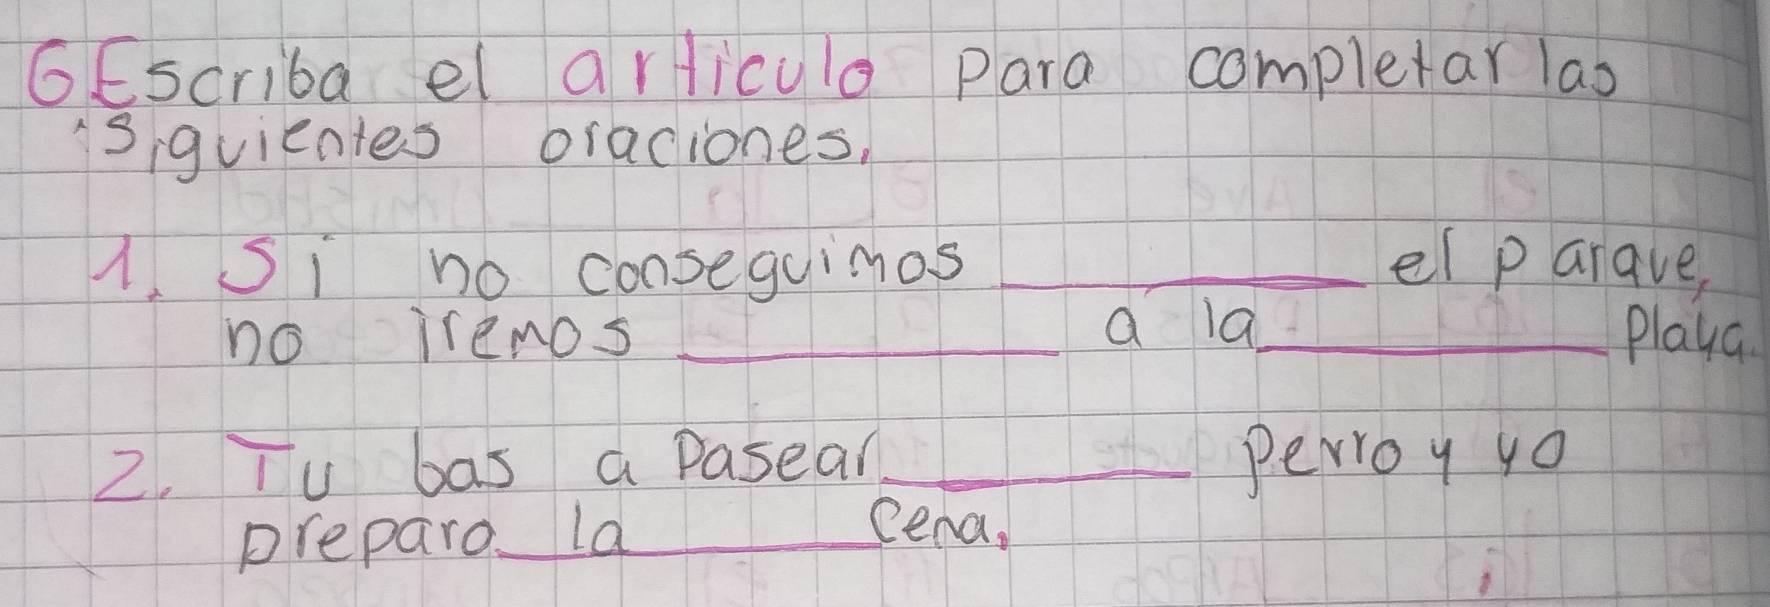 6 Escriba el articulo para completar las
siguientes oraciones.
1. Si no conseguimos ________ el parave,
no iremos ________ a la ________ playa.
2. Tu bas a pasear ________ perro y yo
preparo la ________ cena.